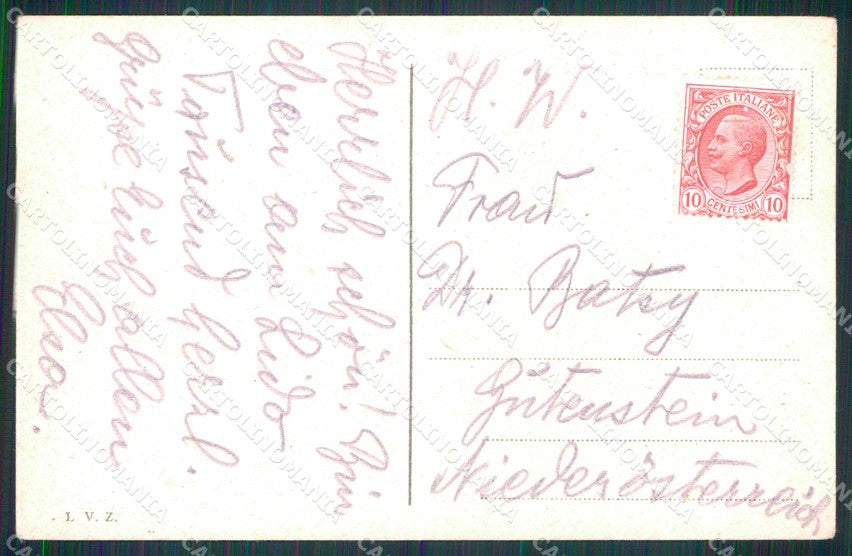 Herrlich schön! Bin
eben am Lido
Tausend herzl.
Grüsse Euch allen
Elsa.
H. W.
Frau
Dr. Batsy
Gutenstein
Niederösterreich
POSTE ITALIANE
10 CENTESIMI 10
I. V. Z.
CARTOLINOMANIA